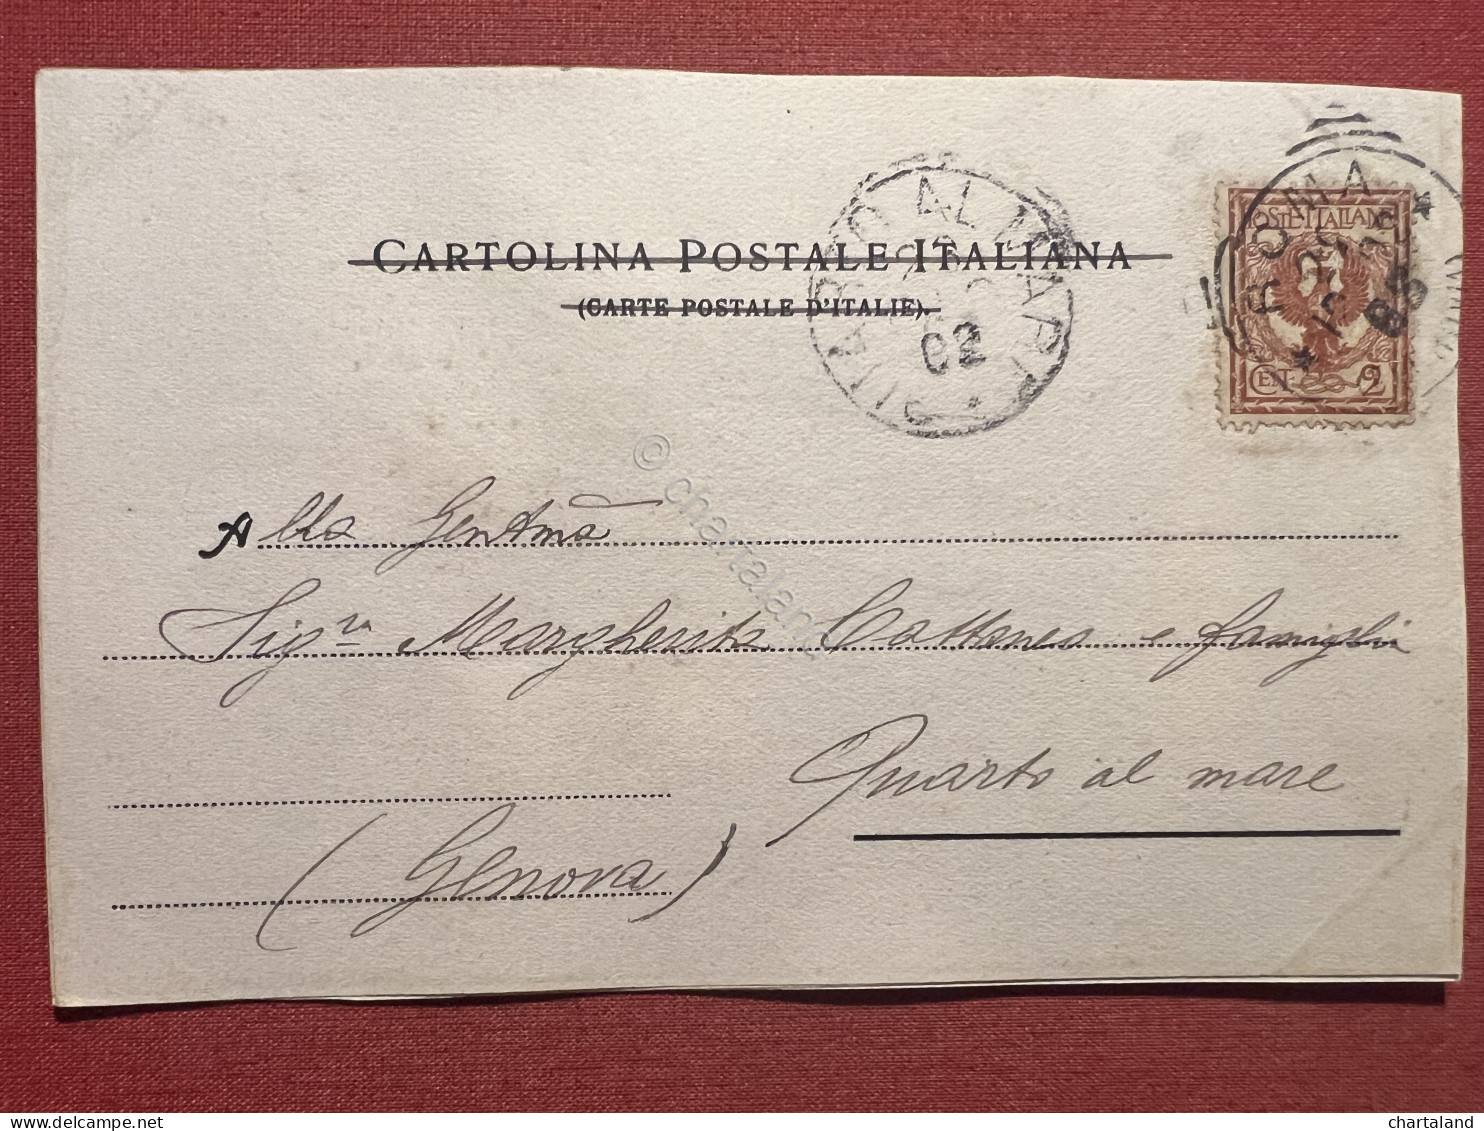 CARTOLINA POSTALE ITALIANA
(CARTE POSTALE D'ITALIE).
QUARTO AL MARE
02
ROMA
POSTE ITALIANE
CENT. 2
Alla Gentma
Sigra Margherita Cattaneo e famiglia
Quarto al mare
(Genova)
© chartaland
chartaland